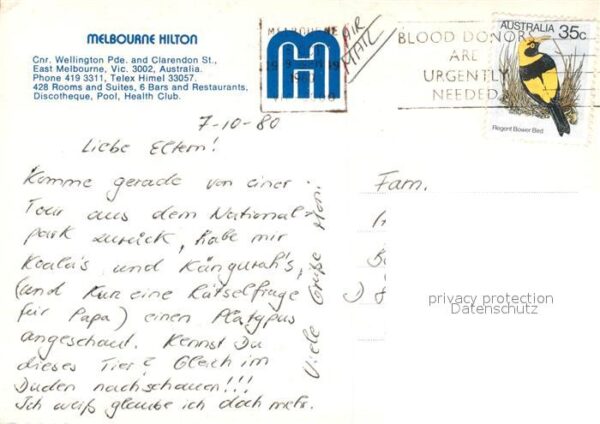 MELBOURNE HILTON
Cnr. Wellington Pde. and Clarendon St.,
East Melbourne, Vic. 3002, Australia.
Phone 419 3311, Telex Himel 33057.
428 Rooms and Suites, 6 Bars and Restaurants,
Discotheque, Pool, Health Club.
MELBOURNE
1980
AIR
MAIL
BLOOD DONORS
ARE
URGENTLY
NEEDED
AUSTRALIA 35c
Regent Bower Bird
7-10-80
Liebe Eltern!
Komme gerade von einer
Tour aus dem National-
park zurück, habe mir
Koala's und Känguruh's,
(und Nur eine Rätselfrage
für Papa) einen Platypus
angeschaut. Kennst Du
dieses Tier? Gleich im
Duden nachschauen!!!
Ich weiß glaube ich doch mehr.
Viele Grüße
Fam.
privacy protection
Datenschutz